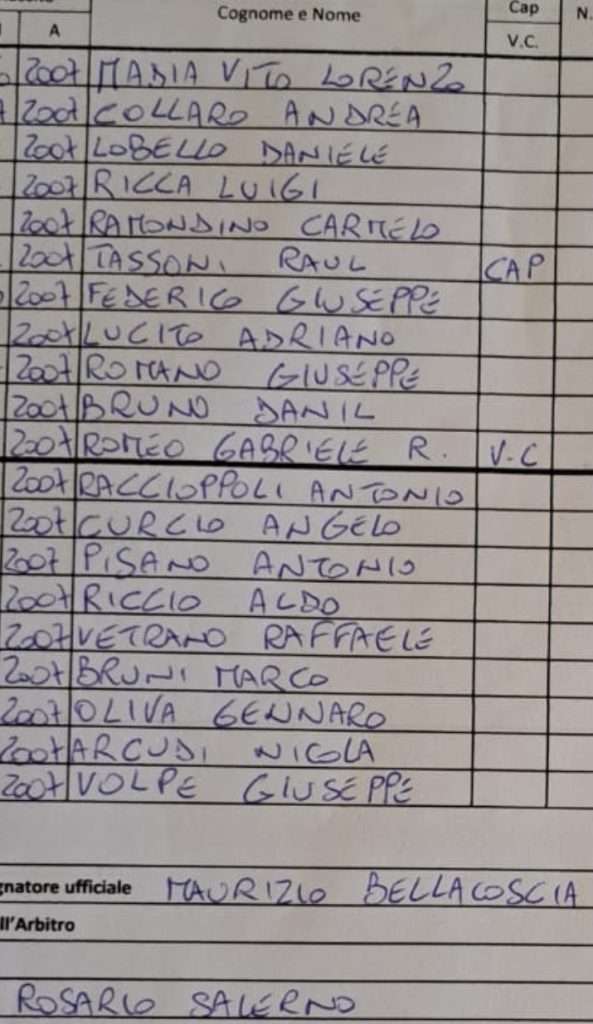 Cognome e Nome Cap N.
A V.C.
2007 MADIA VITO LORENZO
2007 COLLARO ANDREA
2007 LOBELLO DANIELE
2007 RICCA LUIGI
2007 RAMONDINO CARMELO
2007 TASSONI RAUL CAP
2007 FEDERICO GIUSEPPE
2007 LUCITO ADRIANO
2007 ROMANO GIUSEPPE
2007 BRUNO DANIL
2007 ROMEO GABRIELE R. V.C
2007 RACCIOPPOLI ANTONIO
2007 CURCIO ANGELO
2007 PISANO ANTONIO
2007 RICCIO ALDO
2007 VETRANO RAFFAELE
2007 BRUNI MARCO
2007 OLIVA GENNARO
2007 ARCUDI NICOLA
2007 VOLPE GIUSEPPE
gnatore ufficiale MAURIZIO BELLACOSCIA
ll'Arbitro
ROSARIO SALERNO